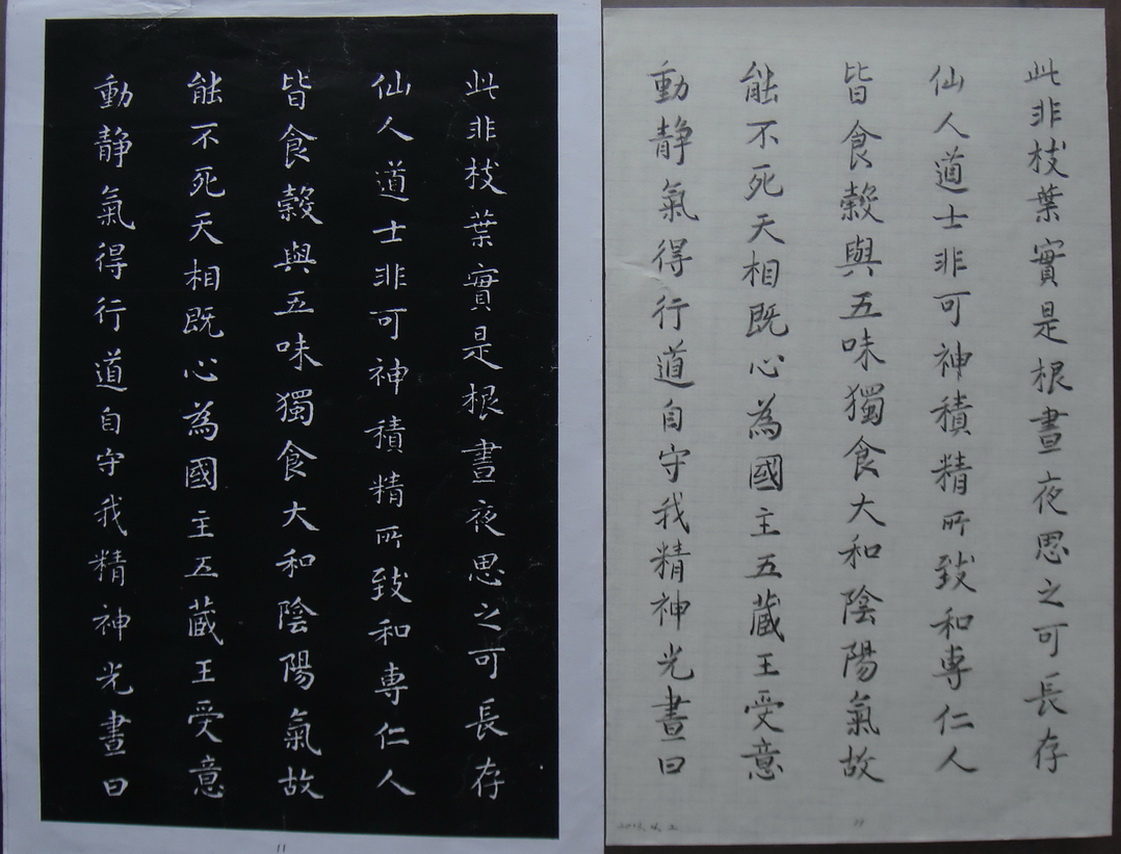 此非枝葉實是根晝夜思之可長存
仙人道士非可神積精所致和専仁人
皆食穀與五味獨食大和陰陽氣故
能不死天相既心為國主五藏王受意
動静氣得行道自守我精神光晝日
11
此非枝葉實是根晝夜思之可長存
仙人道士非可神積精所致和専仁人
皆食穀與五味獨食大和陰陽氣故
能不死天相既心為國主五藏王受意
動静氣得行道自守我精神光晝日
11